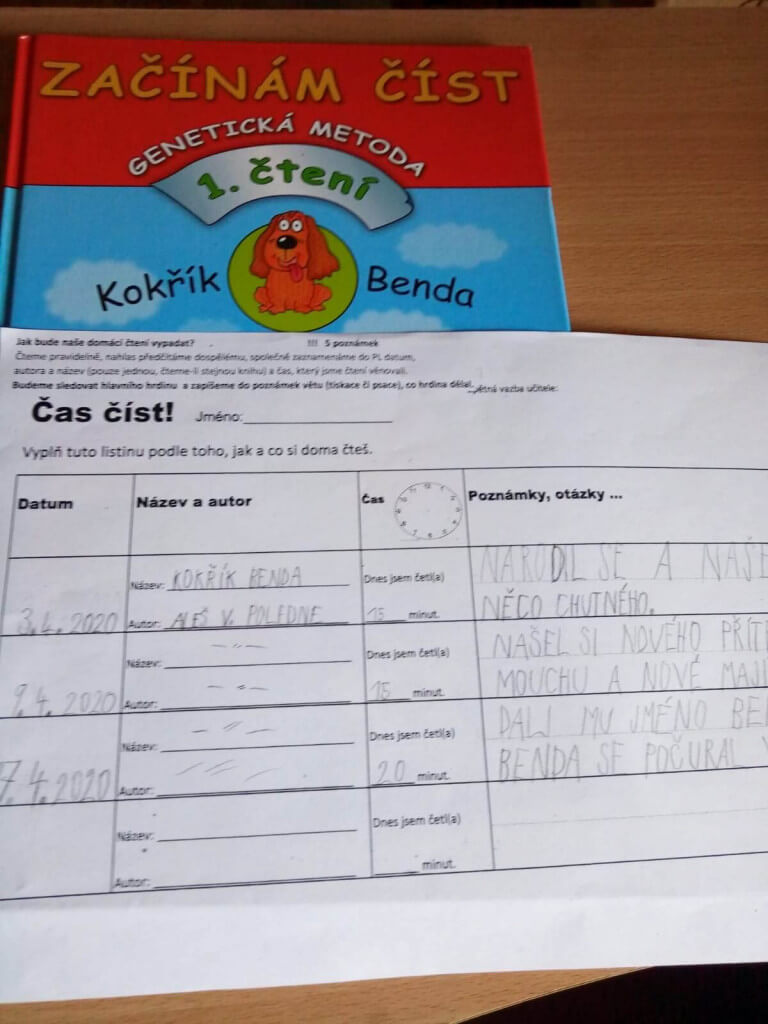 ZAČÍNÁM ČÍST
GENETICKÁ METODA
1. čtení
Kokřík Benda
Jak bude naše domácí čtení vypadat? !!! 5 poznámek
Čteme pravidelně, nahlas předčítáme dospělému, společně zaznamenáme do PL datum,
autora a název (pouze jednou, čteme-li stejnou knihu) a čas, který jsme čtení věnovali.
Budeme sledovat hlavního hrdinu a zapíšeme do poznámek větu (tiskace či psace), co hrdina dělal. vazba učitele:
Čas číst! Jméno:
Vyplň tuto listinu podle toho, jak a co si doma čteš.
Datum Název a autor Čas Poznámky, otázky ...
Název: KOKŘÍK BENDA Dnes jsem četl(a) NARODIL SE A NAŠE
3. 4. 2020 Autor: ALEŠ V. POLEDNE 15 minut. NĚCO CHUTNÉHO.
Název: -〃- Dnes jsem četl(a) NAŠEL SI NOVÉHO PŘÍTE
4. 2020 Autor: -〃- 15 minut. MOUCHU A NOVÉ MAJI
Název: -〃- Dnes jsem četl(a) DALI MU JMÉNO BE
7. 4. 2020 Autor: -〃- 20 minut. BENDA SE POČURAL
Název: Dnes jsem četl(a)
Autor: minut.